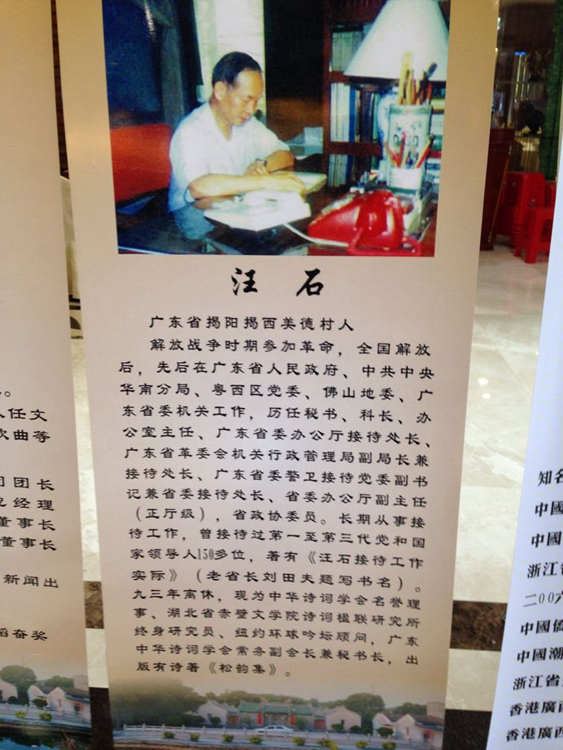 汪 石
广东省揭阳揭西美德村人
解放战争时期参加革命，全国解放
后，先后在广东省人民政府、中共中央
华南分局、粤西区党委、佛山地委、广
东省委机关工作，历任秘书、科长、办
公室主任、广东省委办公厅接待处长、
广东省革委会机关行政管理局副局长兼
接待处长、广东省委警卫接待党委副书
记兼省委接待处长、省委办公厅副主任
（正厅级），省政协委员。长期从事接
待工作，曾接待过第一至第三代党和国
家领导人150多位，著有《汪石接待工作
实际》（老省长刘田夫题写书名）。
九三年离休，现为中华诗词学会名誉理
事、湖北省赤壁文学院诗词楹联研究所
终身研究员、纽约环球吟坛顾问，广东
中华诗词学会常务副会长兼秘书长，出
版有诗著《松韵集》。
人任文
欢曲等
司团长
总经理
董事长
董事长
新闻出
韬奋奖
知名
中國
中國
浙江省
二00六
中國僑
中國潮
浙江省
香港廣西
香港廣西